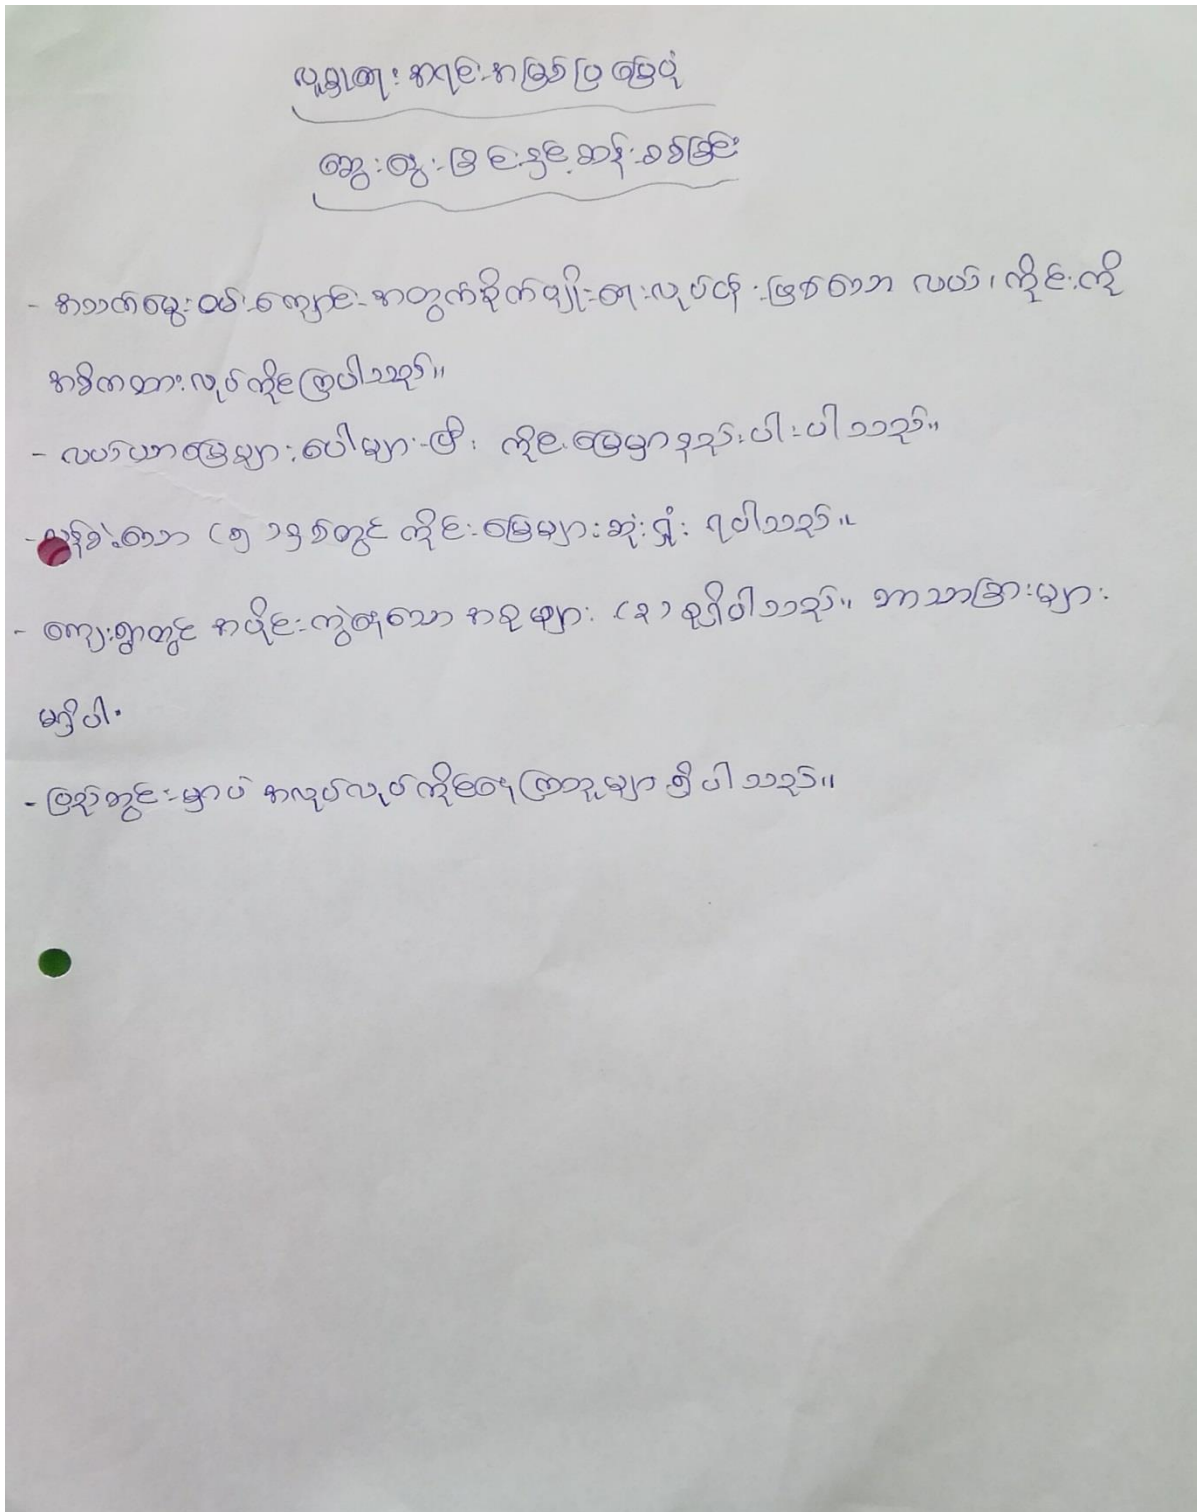 လူမှုရေး အရင်းအမြစ်ပြ မြေပုံ
ဆွေးနွေးခြင်းနှင့် ဆန်းစစ်ခြင်း
- အသက်မွေးဝမ်းကျောင်း အတွက်စိုက်ပျိုးရေးလုပ်ငန်းဖြစ်သော လယ်၊ ကိုင်းကို
အဓိကထားလုပ်ကိုင်ကြပါသည်။
- လယ်ယာမြေများပေါများပြီး ကိုင်းမြေမှာနည်းပါးပါသည်။
- လွန်ခဲ့သော (၅) နှစ်တွင် ကိုင်းမြေများဆုံးရှုံး ရပါသည်။
- ကျေးရွာတွင် အပိုင်းကွဲနေသော အစုများ (၃) စုရှိပါသည်။ ဘာသာခြားများ
မရှိပါ။
- ပြည်တွင်းမှာပဲ အလုပ်လုပ်ကိုင်နေကြသူများရှိပါသည်။